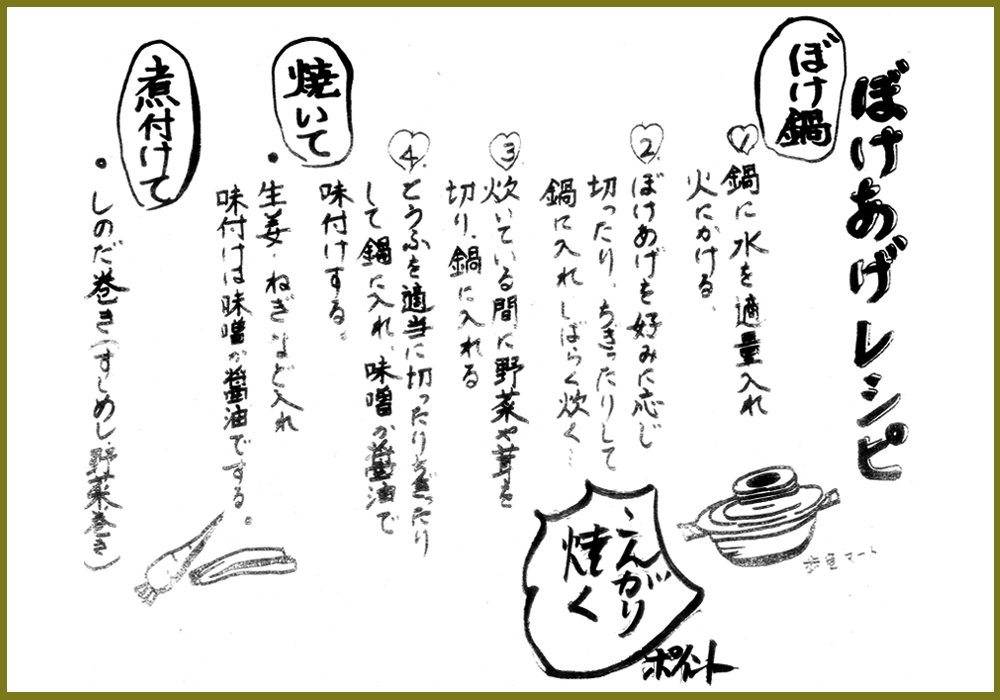 ぼけあげレシピ
ぼけ鍋
1 鍋に水を適量入れ
火にかける。
2 ぼけあげを好みに応じ
切ったり、ちぎったりして
鍋に入れしばらく炊く…
3 炊いている間に野菜や茸を
切り、鍋に入れる
4 とうふを適当に切ったりちぎったり
して鍋に入れ、味噌か醤油で
味付けする。
焼いて
・生姜・ねぎなど入れ
味付けは味噌か醤油でする。
煮付けて
・しのだ巻き(すしめし・野菜巻き)
こんがり
焼く
ポイント